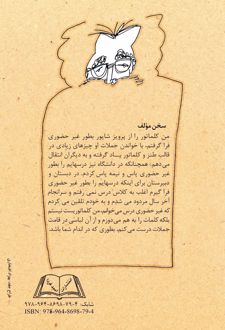 سخن مؤلف
من کلماتور را از پرویز شاپور بطور غیر حضوری
فرا گرفتم. با خواندن جملات او چیزهای زیادی در
قالب طنز و کلماتور یاد گرفته و به دیگران انتقال
می‌دهم؛ همچنانکه در دانشگاه نیز درسهایم را بطور
غیر حضوری پاس و نیمه پاس کردم. در دبستان و
دبیرستان برای اینکه درسهایم را بطور غیر حضوری
فرا گیرم اغلب به کلاس درس نمی رفتم و سرانجام
آخر سال مردود می شدم و به خودم تلقین می کردم
که غیر حضوری درس می‌خوانم. من کلماتوریست نیستم
بلکه کلمات را به هم می‌دوزم و از آن لباسی در قامت
جملات درست می‌کنم، بطوری که در اندام شما باشد.
شابک: ۹۷۸-۹۶۴-۸۶۹۸-۷۹-۴
ISBN: 978-964-8698-79-4